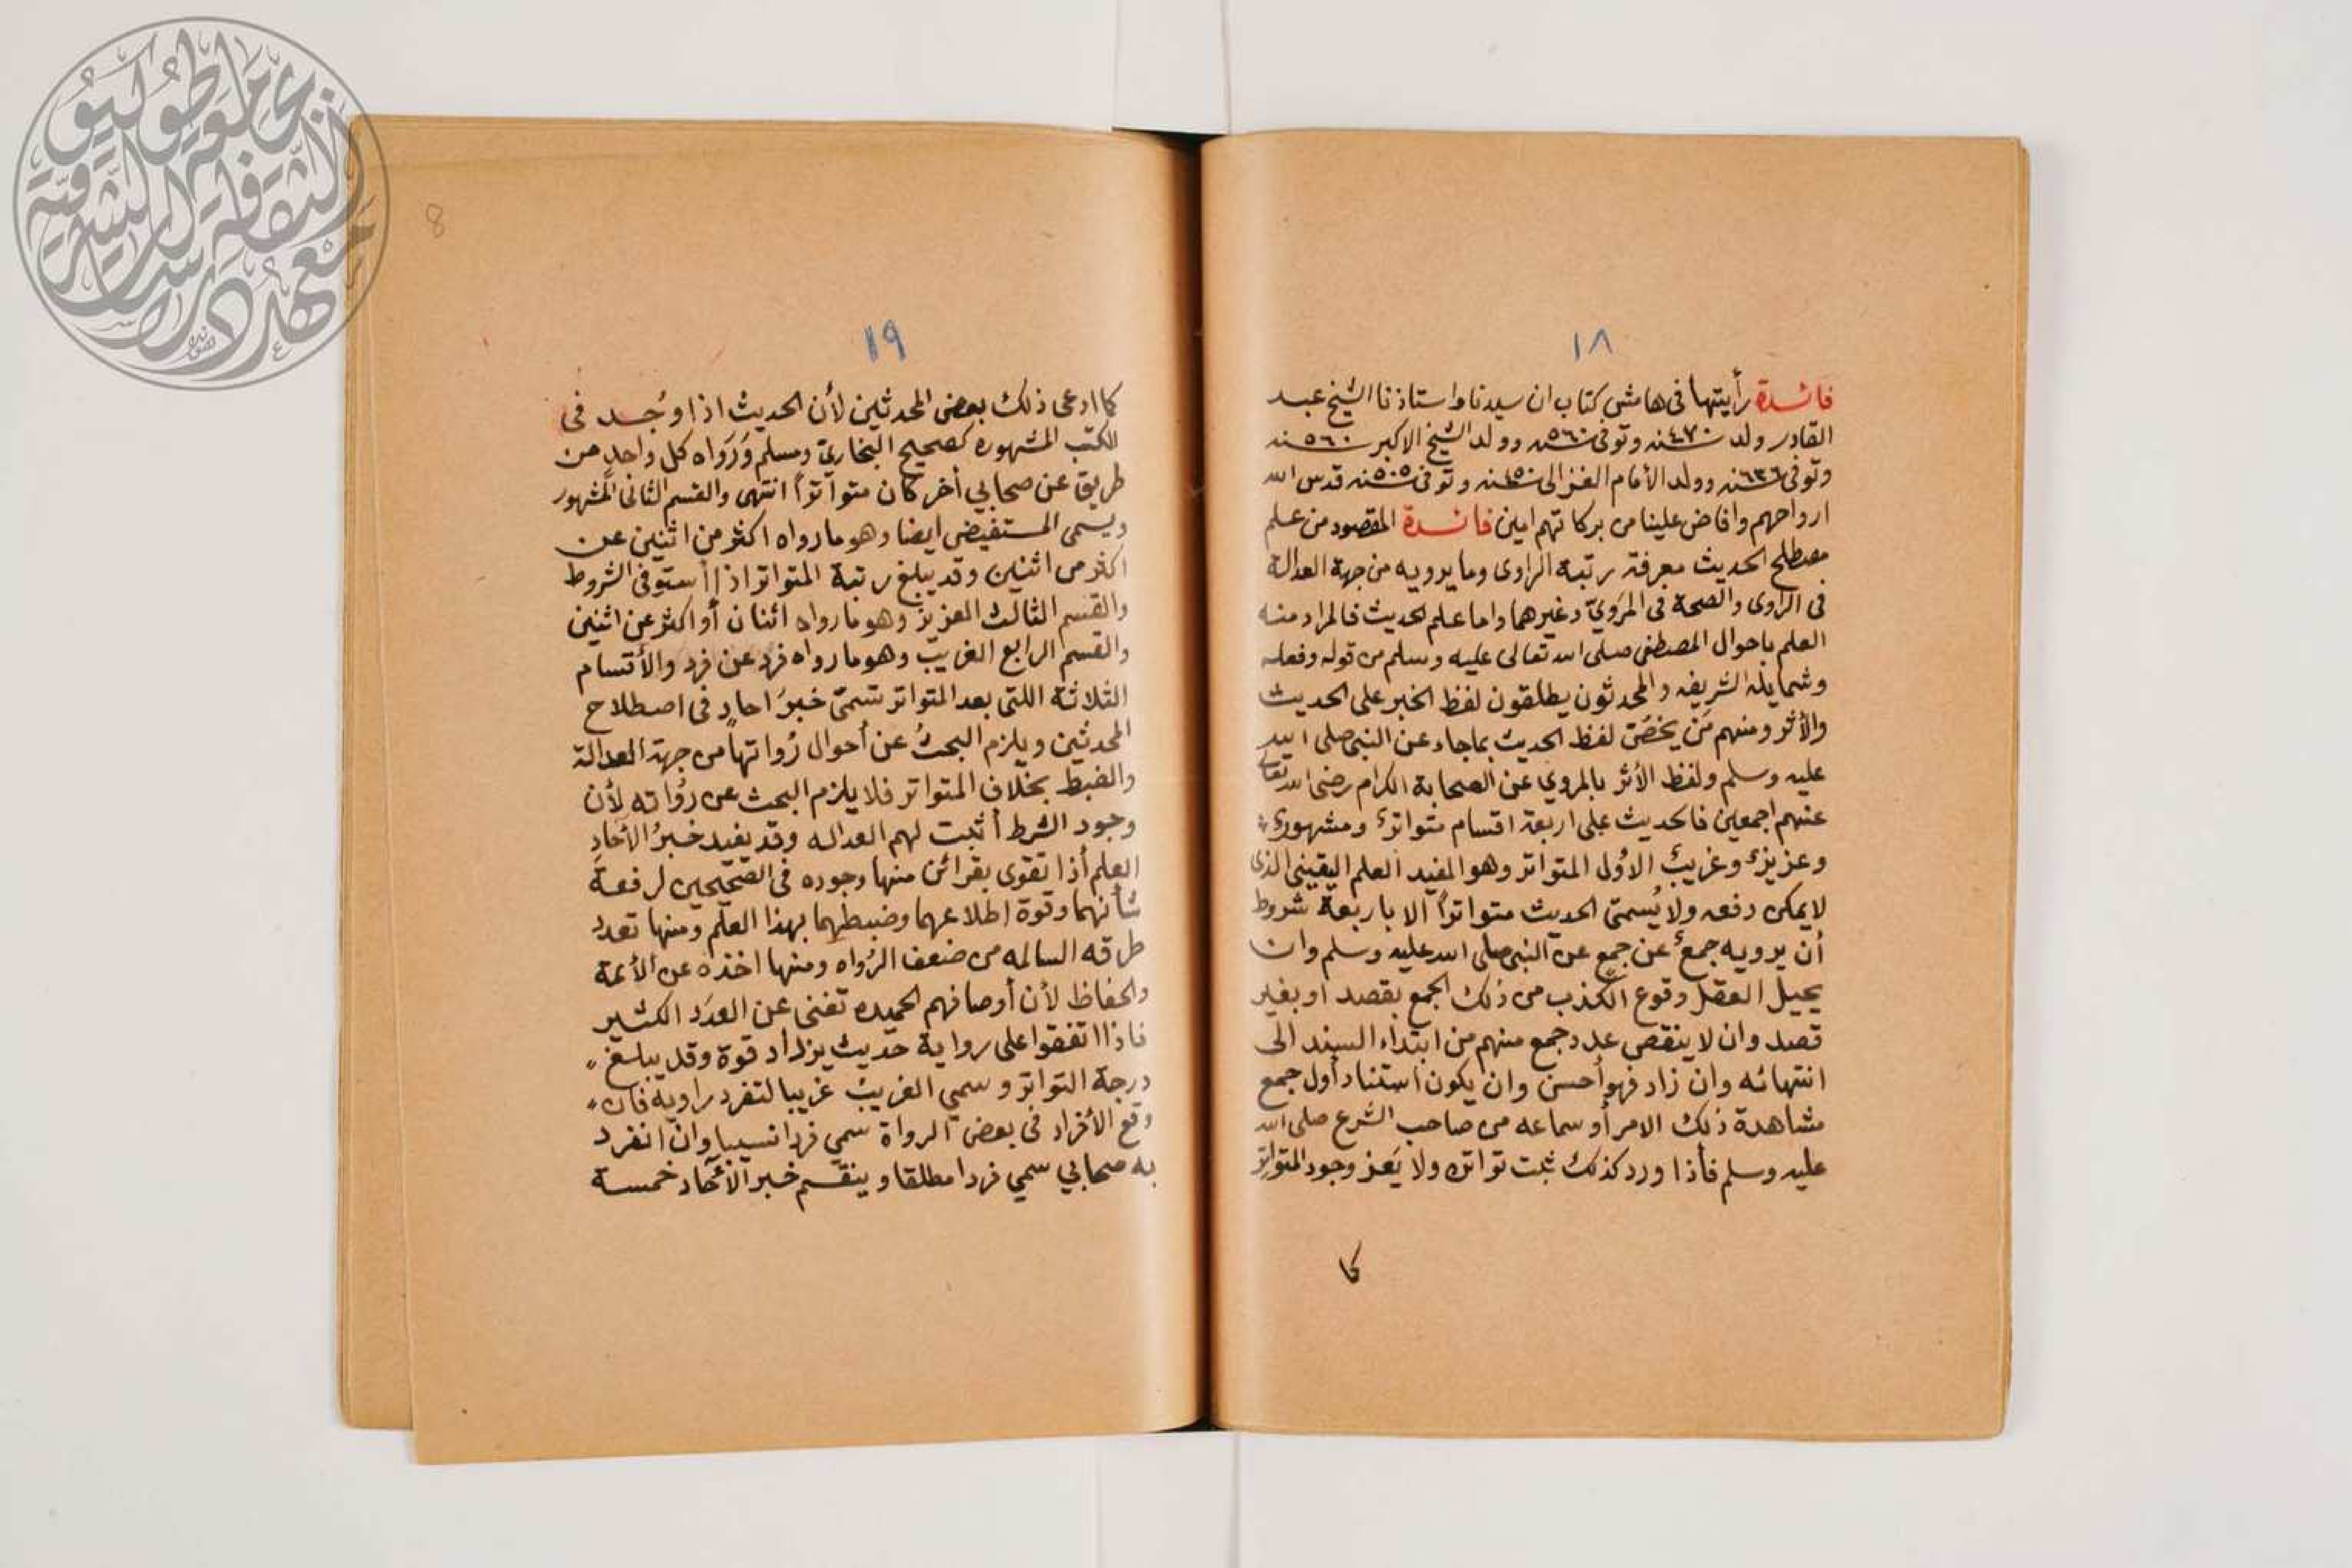 ١٨
فائدة رأيتها فى هامش كتاب ان سيدنا واستاذنا الشيخ عبد
القادر ولد سنه ٤٧٠ وتوفى سنه ٥٦٠ وولد الشيخ الاكبر سنه ٥٦٠
وتوفى سنه ٦٣٦ وولد الأمام الغزالى سنه ٤٥٠ وتوفى سنه ٥٠٥ قدس الله
ارواحهم وافاض علينا من بركاتهم امين فائدة المقصود من علم
مصطلح الحديث معرفة رتبة الراوى وما يرويه من جهة العدالة
فى الراوى والصحة فى المَرَويّ وغيرهما واما علم الحديث فالمراد منه
العلم باحوال المصطفى صلى الله تعالى عليه وسلم من قوله وفعله
وشمايله الشريفه والمحدثون يطلقون لفظ الخبر على الحديث
والأثر ومنهم مَن يخصُّ لفظ الحديث بما جاء عن النبى صلى الله
عليه وسلم ولفظ الأثر بالمروي عن الصحابة الكرام رضى الله تعالى
عنهم اجمعين فالحديث على اربعة اقسام متواترٌ ومشهورٌ
وعزيزٌ وغريبٌ الاول المتواتر وهو المفيد العلم اليقينى الذى
لا يمكن دفعه ولا يُسمىّ الحديث متواتراً الا باربعة شروط
أن يرويه جمعٌ عن جمعٍ عن النبى صلى الله عليه وسلم وان
يحيل العقل وقوع الكذب من ذلك الجمع بقصد او بغير
قصد وان لا ينقص عدد جمع منهم من ابتداء السند الى
انتهائه وان زاد فهو أحسن وان يكون استناد أول جمع
مشاهدة ذلك الامر أو سماعه من صاحب الشرع صلى الله
عليه وسلم فأذا ورد كذلك ثبت تواتره ولا يَعز وجود المتواتر
كما
١٩
8
كما ادعى ذلك بعض المحدثين لأن الحديث اذا وُجد فى
الكتب المشهوره كصحيح البخاريّ ومسلم وَرَوَاه كل واحدٍ من
طريق عن صحابي أخر كان متواتراً انتهى والقسم الثانى المشهور
ويسمى المستفيض ايضا وهو ما رواه اكثر من اثنين عن
اكثر من اثنين وقد يبلغ رتبة المتواتر اذا أستوفى الشروط
والقسم الثالث العزيز وهو ما رواه اثنان أو اكثر عن اثنين
والقسم الرابع الغريب وهو ما رواه فرد عن فرد والأقسام
الثلاثة اللتى بعد المتواتر تسمىّ خبرَ احادٍ فى اصطلاح
المحدثين ويلزم البحثُ عن أحوال رُواتها من جهة العدالة
والضبط بخلاف المتواتر فلا يلزم البحث عن رُواته لأن
وجود الشرط أثبت لهم العداله وقد يفيد خبرُ الأحادِ
العلم أذا تقوى بقرائن منها وجوده فى الصحيحين لرفعة
شأنهما وقوة اطلاعهما وضبطهما بهذا العلم ومنها تعدد
طرقه السالمه من ضعف الرُواه ومنها اخذه عن الأئمة
والحفاظ لأن أوصافهم الحميده تغنى عن العدَد الكثير
فاذا اتفقوا على رواية حديث يزداد قوة وقد يبلغ
درجة التواتر وسمي الغريبُ غريبا لتفرد راويه فان
وقع الأفراد فى بعض الرواة سمي فردا نسبيا وان انفرد
به صحابي سمي فردا مطلقا وينقسم خبر الأحاد خمسة